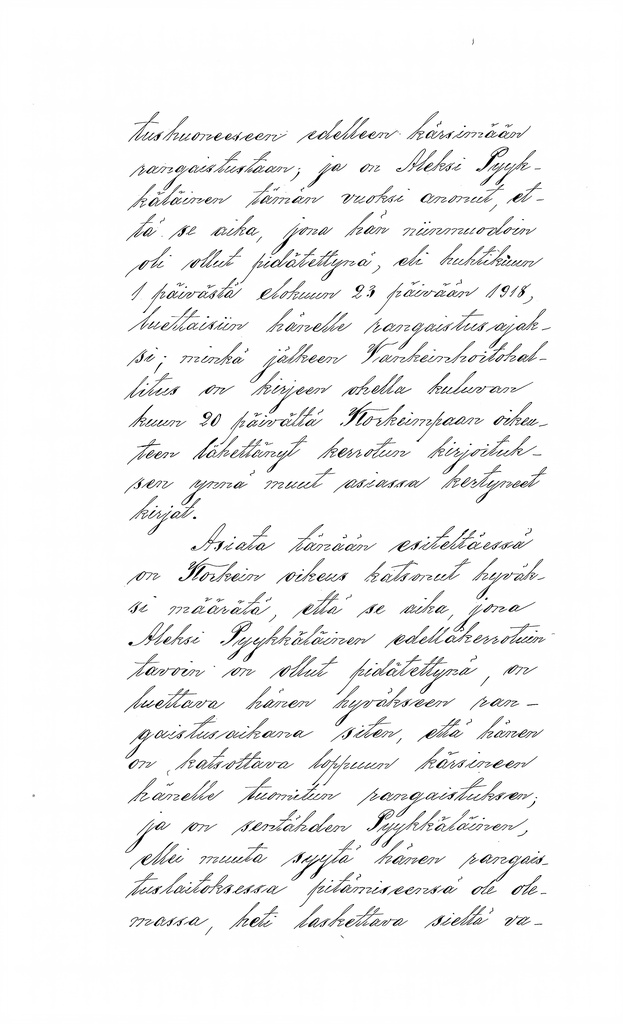 tushuoneeseen edelleen kärsimään
rangaistustaan; ja on Aleksi Pyyk-
käläinen tämän vuoksi anonut, et-
tä se aika, jona hän niinmuodoin
oli ollut pidätettynä, eli huhtikuun
1 päivästä elokuun 23 päivään 1918,
luettaisiin hänelle rangaistusajak-
si; minkä jälkeen Vankeinhoitohal-
litus on kirjeen ohella kuluvan
kuun 20 päivältä Korkeimpaan oikeu-
teen lähettänyt kerrotun kirjoituk-
sen ynnä muut asiassa kertyneet
kirjat.
Asiata tänään esiteltäessä
on Korkein oikeus katsonut hyväk-
si määrätä, että se aika, jona
Aleksi Pyykkäläinen edelläkerrotuin
tavoin on ollut pidätettynä, on
luettava hänen hyväkseen ran-
gaistusaikana siten, että hänen
on katsottava loppuun kärsineen
hänelle tuomitun rangaistuksen;
ja on sentähden Pyykkäläinen,
ellei muuta syytä hänen rangais-
tuslaitoksessa pitämiseensä ole ole-
massa, heti laskettava sieltä va-